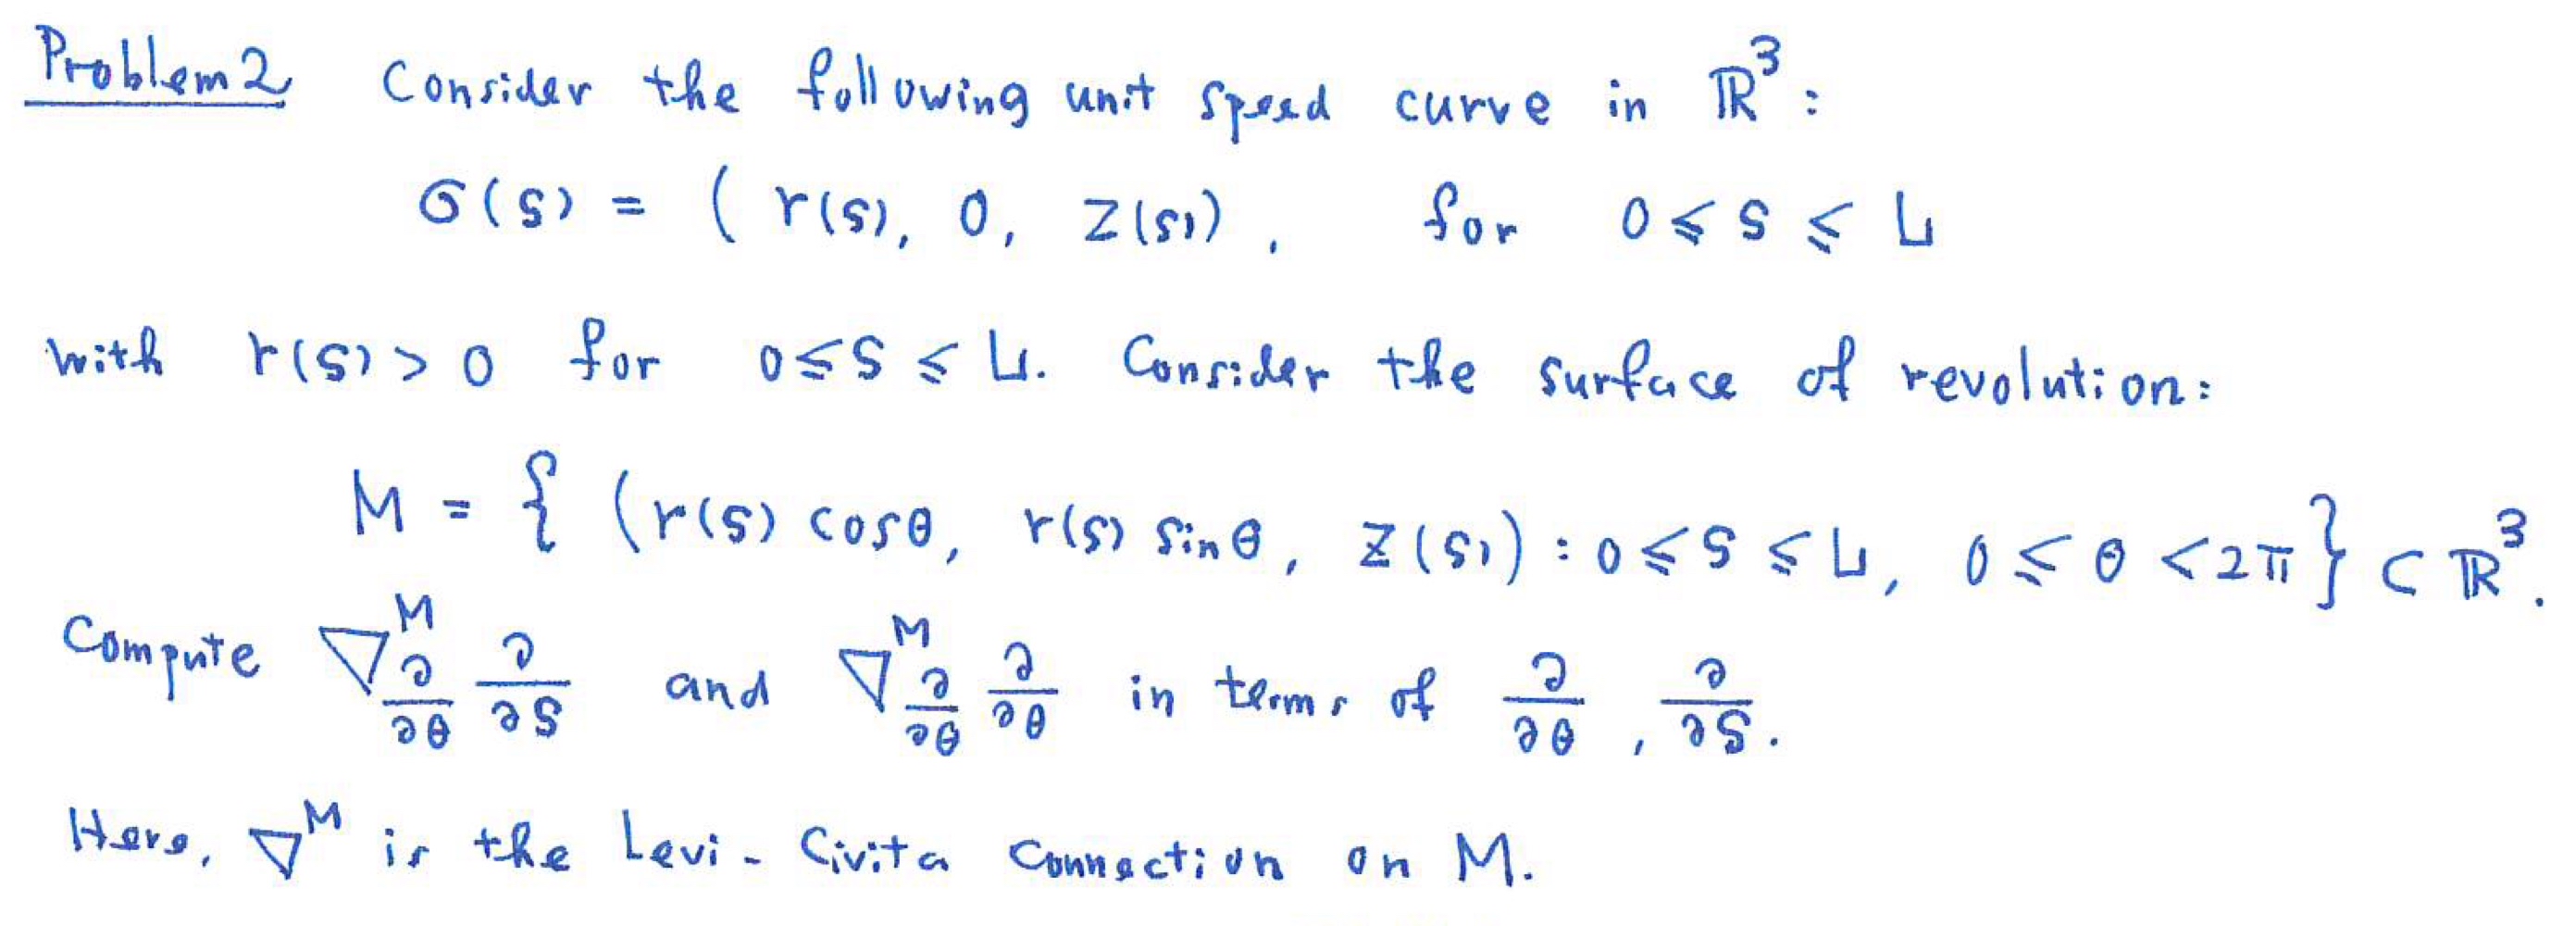 Problem 2 Consider the following unit speed curve in ℝ³:
σ(s) = ( r(s), 0, z(s)), for 0 ≤ s ≤ L
with r(s) > 0 for 0 ≤ s ≤ L. Consider the surface of revolution:
M = { (r(s) cosθ, r(s) sinθ, z(s)) : 0 ≤ s ≤ L, 0 ≤ θ < 2π} ⊂ ℝ³.
Compute ∇^M_{∂/∂θ} ∂/∂s and ∇^M_{∂/∂θ} ∂/∂θ in terms of ∂/∂θ, ∂/∂s.
Here, ∇^M is the Levi-Civita connection on M.